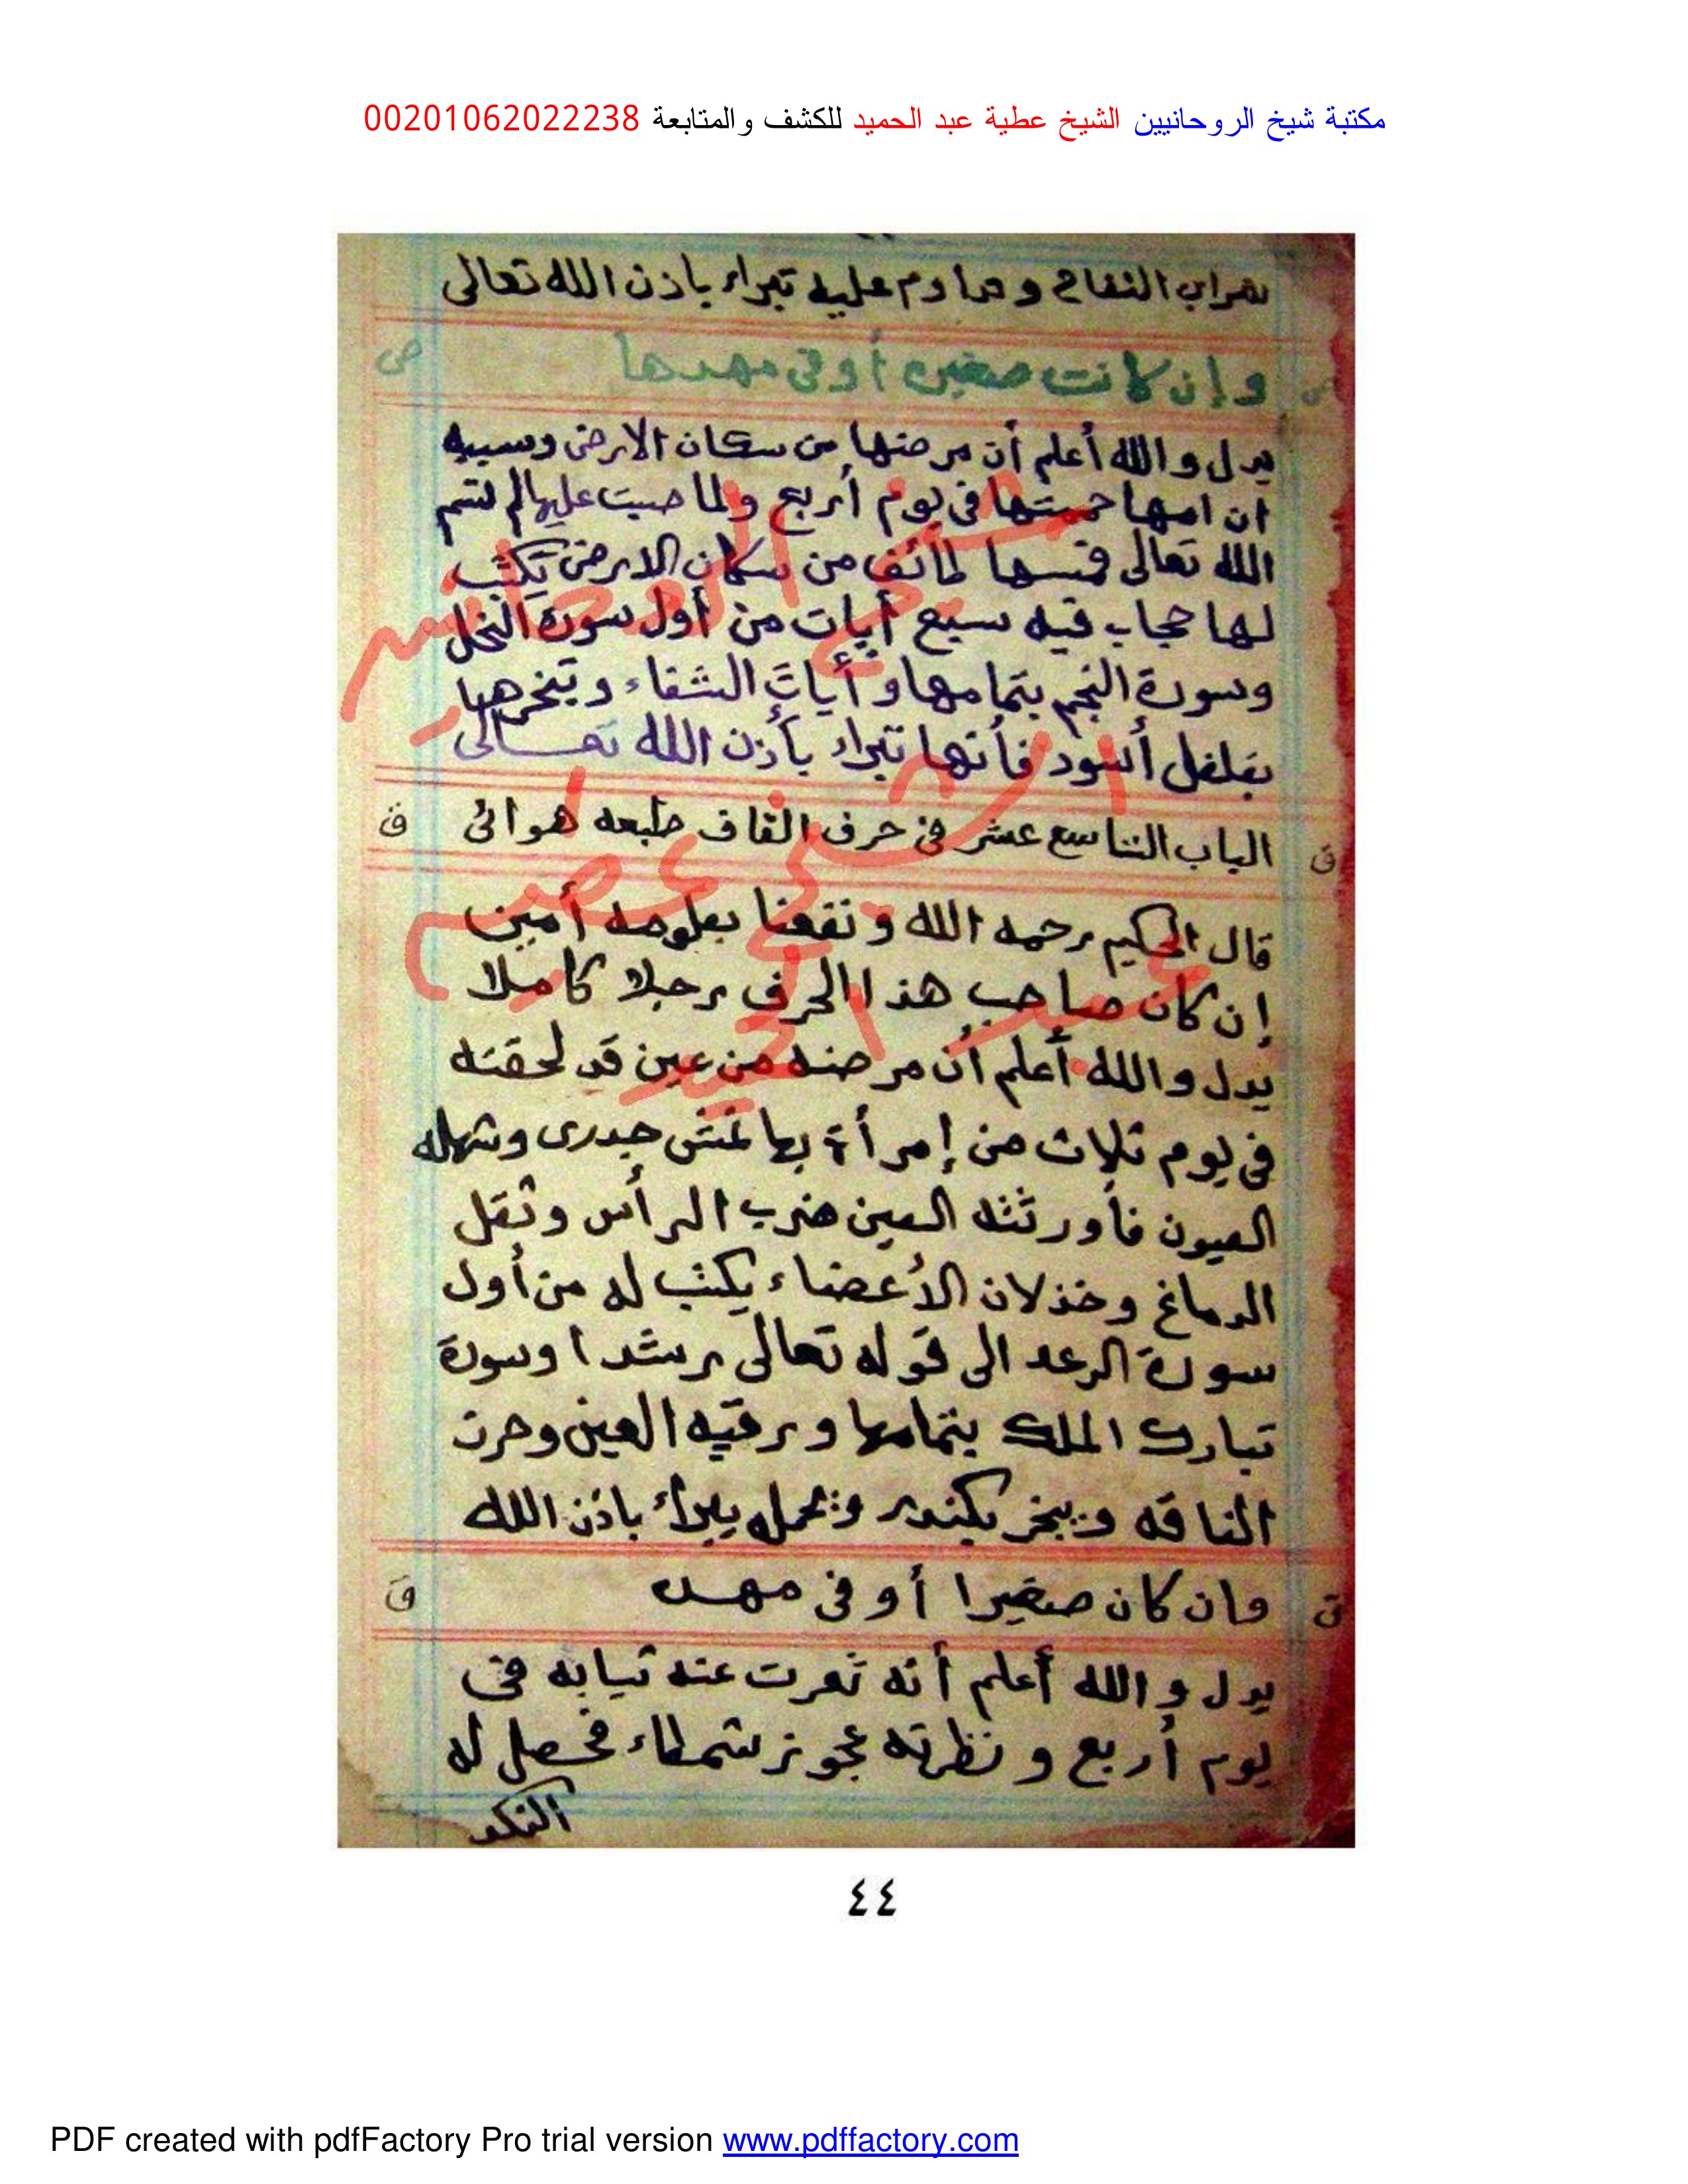 مكتبة شيخ الروحانيين الشيخ عطية عبد الحميد للكشف والمتابعة 00201062022238
شراب التفاح وداوم عليه تبراء باذن الله تعالى
وإن كانت صغيره أو فى مهدها
ص
يدل والله أعلم أن مرضها من سكان الارض وسببه
أن امها حمتها فى يوم أربع ولما صبت عليها لم تسم
الله تعالى فمسها طائف من سكان الارض تكتب
لها حجاب فيه سبع أيات من أول سورة النحل
وسورة النجم بتمامها وأيات الشفاء وتبخرها
بفلفل أسود فأنها تبراء بأذن الله تعالى
ق الباب التاسع عشر فى حرف القاف طبعه هوائى ق
قال الحكيم رحمه الله ونفعنا بعلومه أمين
إن كان صاحب هذا الحرف رجلا كاملا
يدل والله أعلم أن مرضه من عين قد لحقته
فى يوم ثلاث من إمرأة بها نمش جدرى وشهله
العيون فأورثته العين ضرب الرأس وثقل
الدماغ وخذلان الأعضاء يكتب له من أول
سورة الرعد الى قوله تعالى رشدا وسورة
تبارك الملك بتمامها ورقيه العين وحرز
الناقه ويبخر بكندر ويحمله يبراء باذن الله
ق وان كان صغيرا أو فى مهده ق
يدل والله أعلم أنه تعرت عنه ثيابه فى
يوم أربع ونظرته عجوز شمطاء فحصل له
النكد
شيخ الروحانيين
الشيخ عطيه
عبد الحميد
٤٤
PDF created with pdfFactory Pro trial version www.pdffactory.com